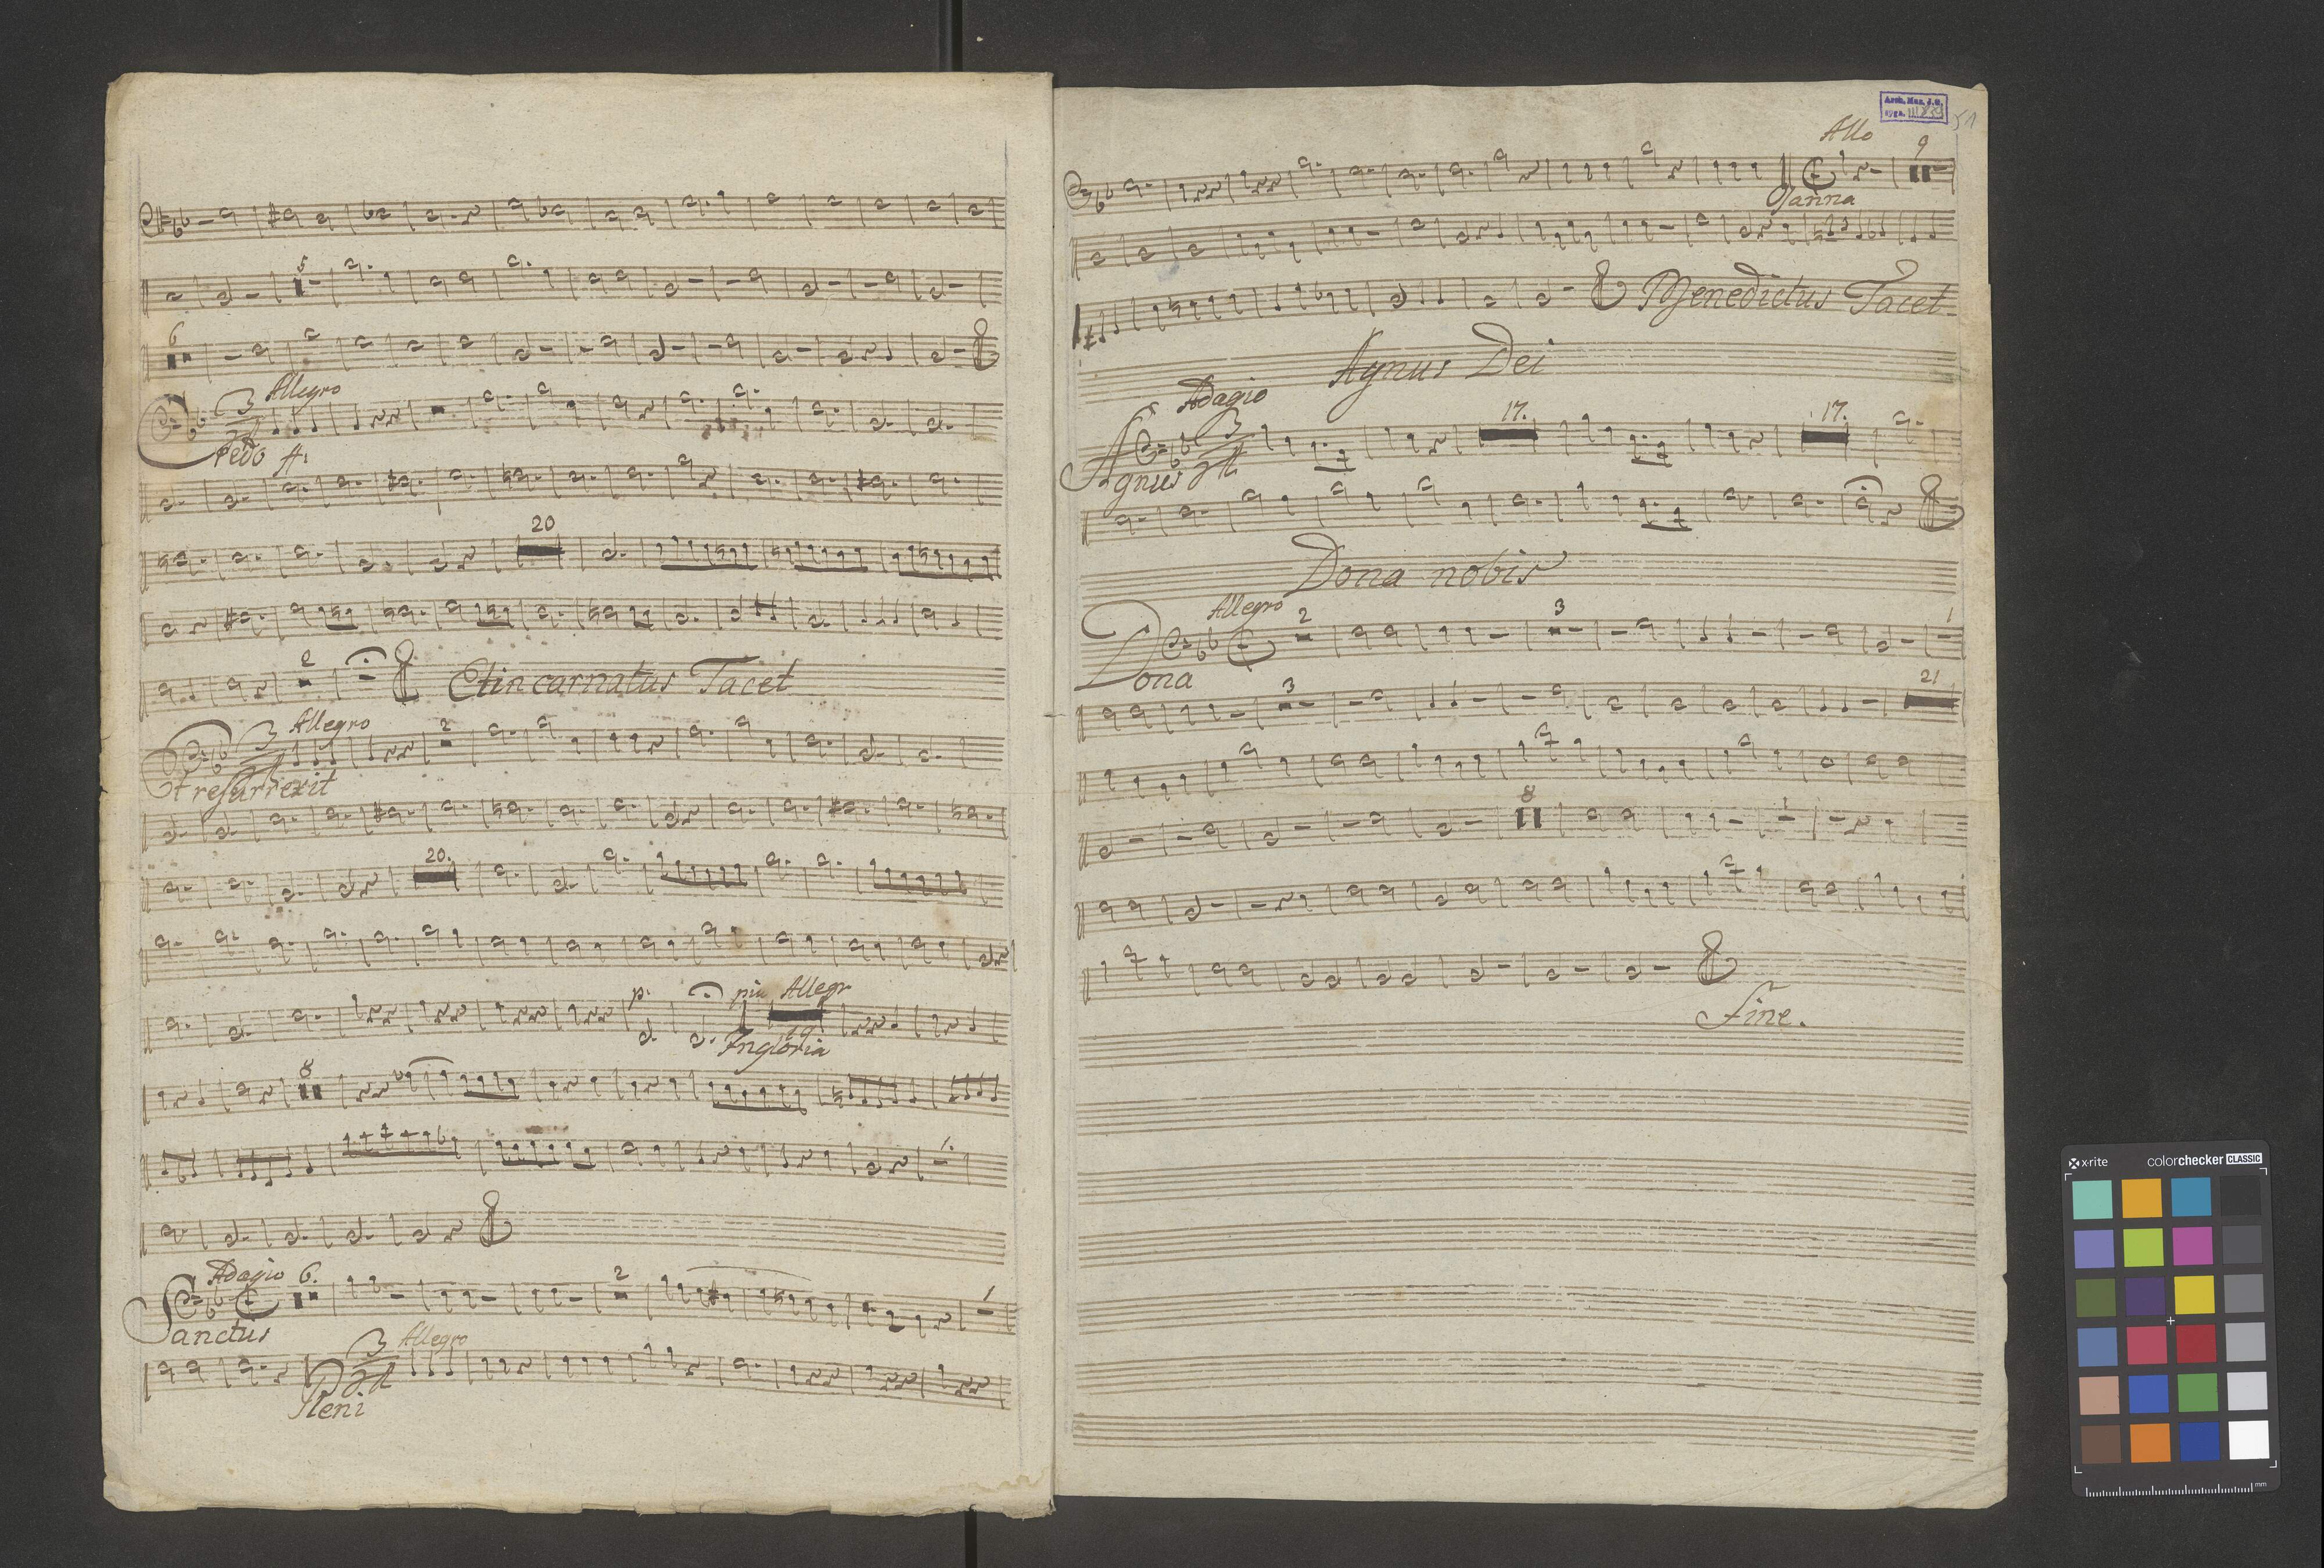 5
6
Allegro
3
Credo f:
20
2
Et incarnatus Tacet
Allegro
3
2
Et resurrexit
20.
p.
più Allegr
19
In gloria
8
1.
Adagio 6.
2
1
Sanctus
3 Allegro
Pleni
51
Allo
9
Osanna
Benedictus Tacet
Agnus Dei
Adagio
3
17.
17.
Agnus
Dona nobis
Allegro
2
3
1
Dona
3
21
8
1
Fine.
x-rite
colorchecker CLASSIC
mm